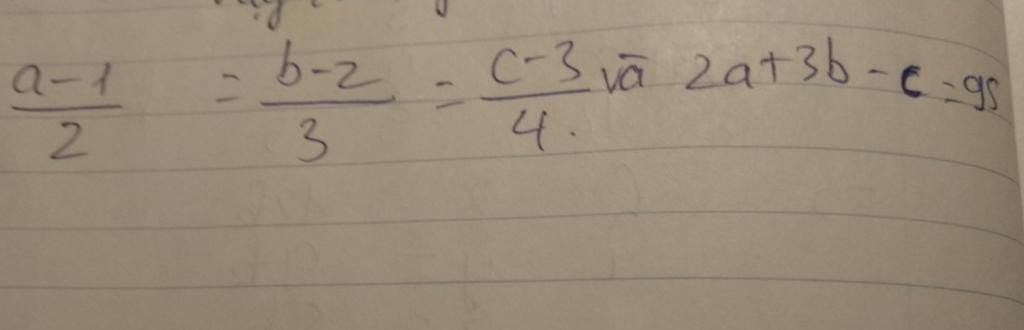 a-1/2 = b-2/3 = c-3/4. và 2a+3b-c=95